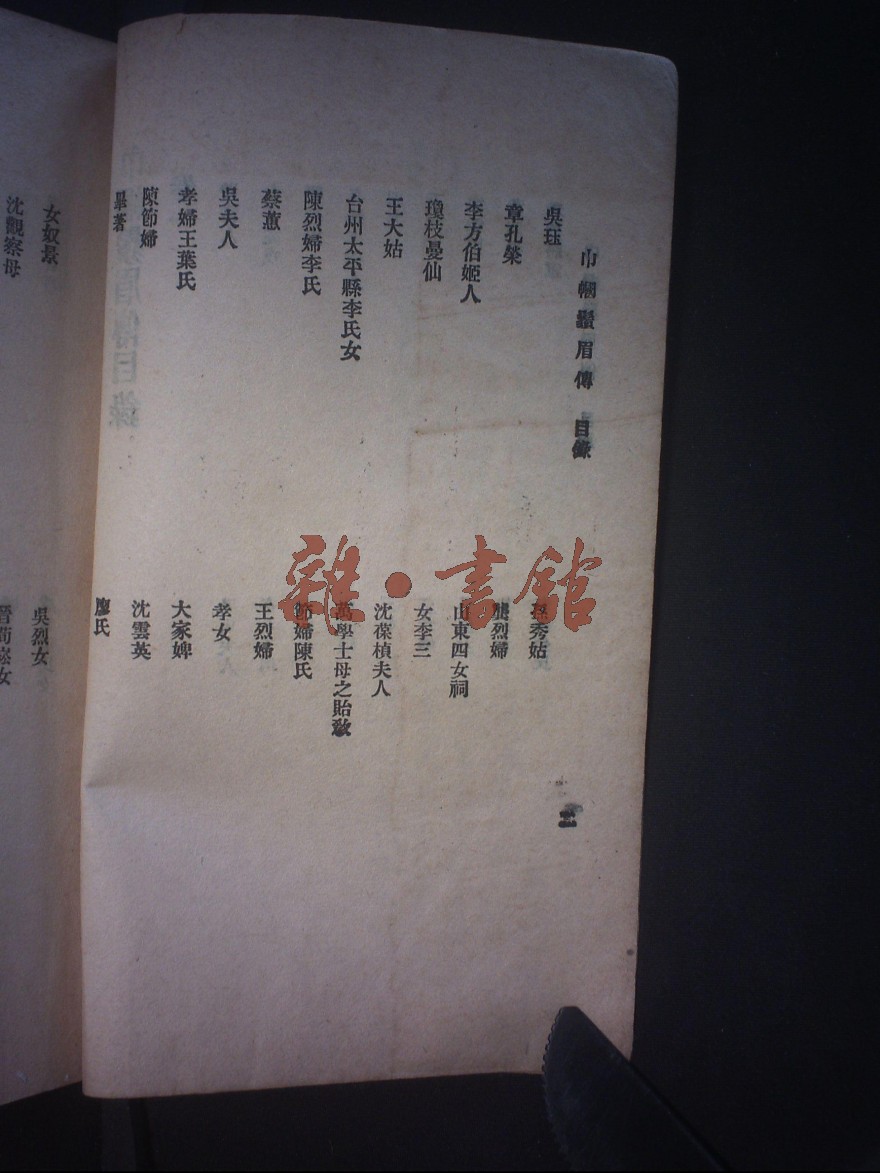 巾幗鬚眉傳 目錄
二
吳珏
孫秀姑
章孔榮
龔烈婦
李方伯姬人
山東四女祠
瓊枝曼仙
女李三
王大姑
沈葆楨夫人
台州太平縣李氏女
萬學士母之貽教
陳烈婦李氏
節婦陳氏
蔡蕙
王烈婦
吳夫人
孝女
孝婦王葉氏
大家婢
陳節婦
沈雲英
畢著
廖氏
女奴景
吳烈女
沈觀察母
女
雜·書館